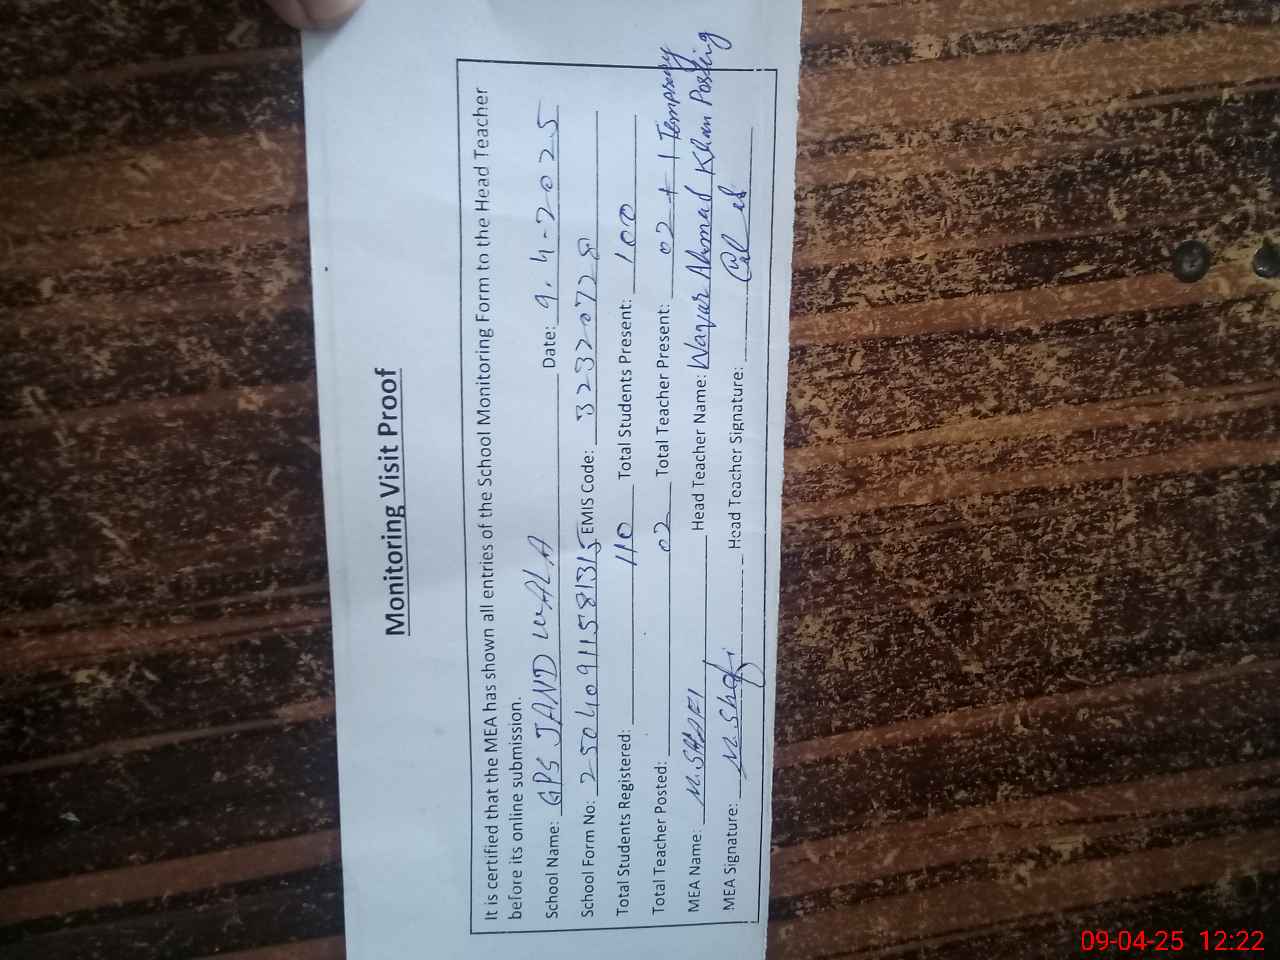 Monitoring Visit Proof
It is certified that the MEA has shown all entries of the School Monitoring Form to the Head Teacher
before its online submission.
School Name: GPS JAND WALA Date: 9.4-2025
School Form No: 25040911581315 EMIS Code: 32320728
Total Students Registered: 110 Total Students Present: 100
Total Teacher Posted: 02 Total Teacher Present: 02 + 1 Tempraey
MEA Name: M. SHAFI Head Teacher Name: Waqar Ahmad Khan Posting
MEA Signature: M. Shafi Head Teacher Signature:
09-04-25 12:22